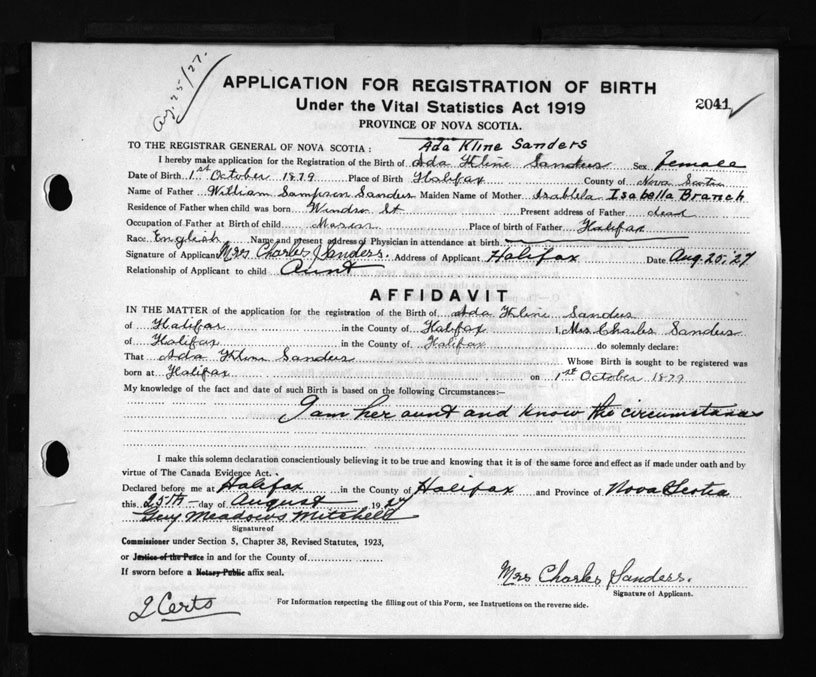 Aug. 25/27.
APPLICATION FOR REGISTRATION OF BIRTH
Under the Vital Statistics Act 1919
2041
PROVINCE OF NOVA SCOTIA.
TO THE REGISTRAR GENERAL OF NOVA SCOTIA: Ada Kline Sanders
I hereby make application for the Registration of the Birth of Ada Kline Sanders Sex female
Date of Birth 1st October 1879 Place of Birth Halifax County of Nova Scotia
Name of Father William Sampson Sanders Maiden Name of Mother Isabella Isabella Branch
Residence of Father when child was born Windsor St Present address of Father dead
Occupation of Father at Birth of child Mason Place of birth of Father Halifax
Race English Name and present address of Physician in attendance at birth
Signature of Applicant Mrs Charles Sanders. Address of Applicant Halifax Date Aug. 25, '27
Relationship of Applicant to child Aunt
AFFIDAVIT
IN THE MATTER of the application for the registration of the Birth of Ada Kline Sanders
of Halifax in the County of Halifax I, Mrs Charles Sanders
of Halifax in the County of Halifax do solemnly declare:
That Ada Kline Sanders Whose Birth is sought to be registered was
born at Halifax on 1st October 1879
My knowledge of the fact and date of such Birth is based on the following Circumstances:—
I am her aunt and know the circumstances
I make this solemn declaration conscientiously believing it to be true and knowing that it is of the same force and effect as if made under oath and by
virtue of The Canada Evidence Act.
Declared before me at Halifax in the County of Halifax and Province of Nova Scotia
this 25th day of August 1927
Meadows Mitchell
Signature of
Commissioner under Section 5, Chapter 38, Revised Statutes, 1923,
or Justice of the Peace in and for the County of
If sworn before a Notary Public affix seal.
Mrs Charles Sanders.
Signature of Applicant.
2 Certs
For Information respecting the filling out of this Form, see Instructions on the reverse side.